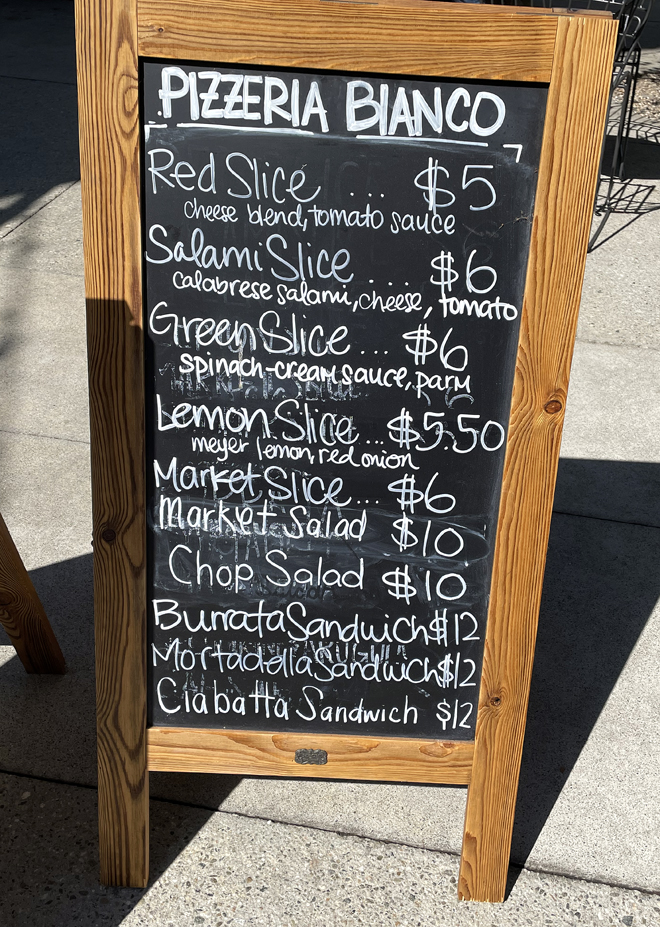 PIZZERIA BIANCO
Red Slice ... $5
cheese blend, tomato sauce
Salami Slice .... $6
calabrese salami, cheese, tomato
Green Slice ... $6
spinach-cream sauce, parm
Lemon Slice ... $5.50
meyer lemon, red onion
Market Slice ... $6
Market Salad $10
Chop Salad $10
Burrata Sandwich $12
Mortadella Sandwich $12
Ciabatta Sandwich $12